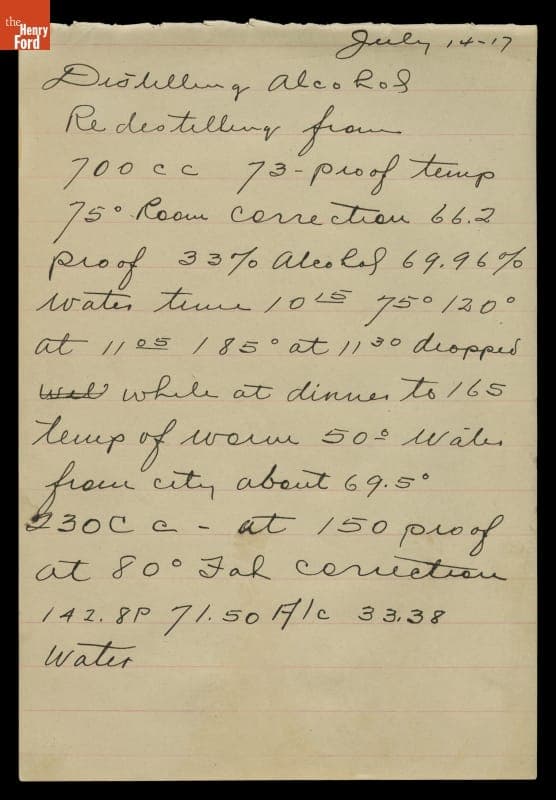 the
Henry
Ford
July 14-17
Distilling Alcohol
Redestilling from
700 c c 73-proof temp
75° Room correction 66.2
proof 33% Alcohol 69.96%
water time 10 15 75° 120°
at 11 05 185° at 11 30 dropped
while at dinner to 165
temp of worm 50° Water
from city about 69.5°
230 C c - at 150 proof
at 80° Fah correction
142.8P 71.50 A/c 33.38
Water